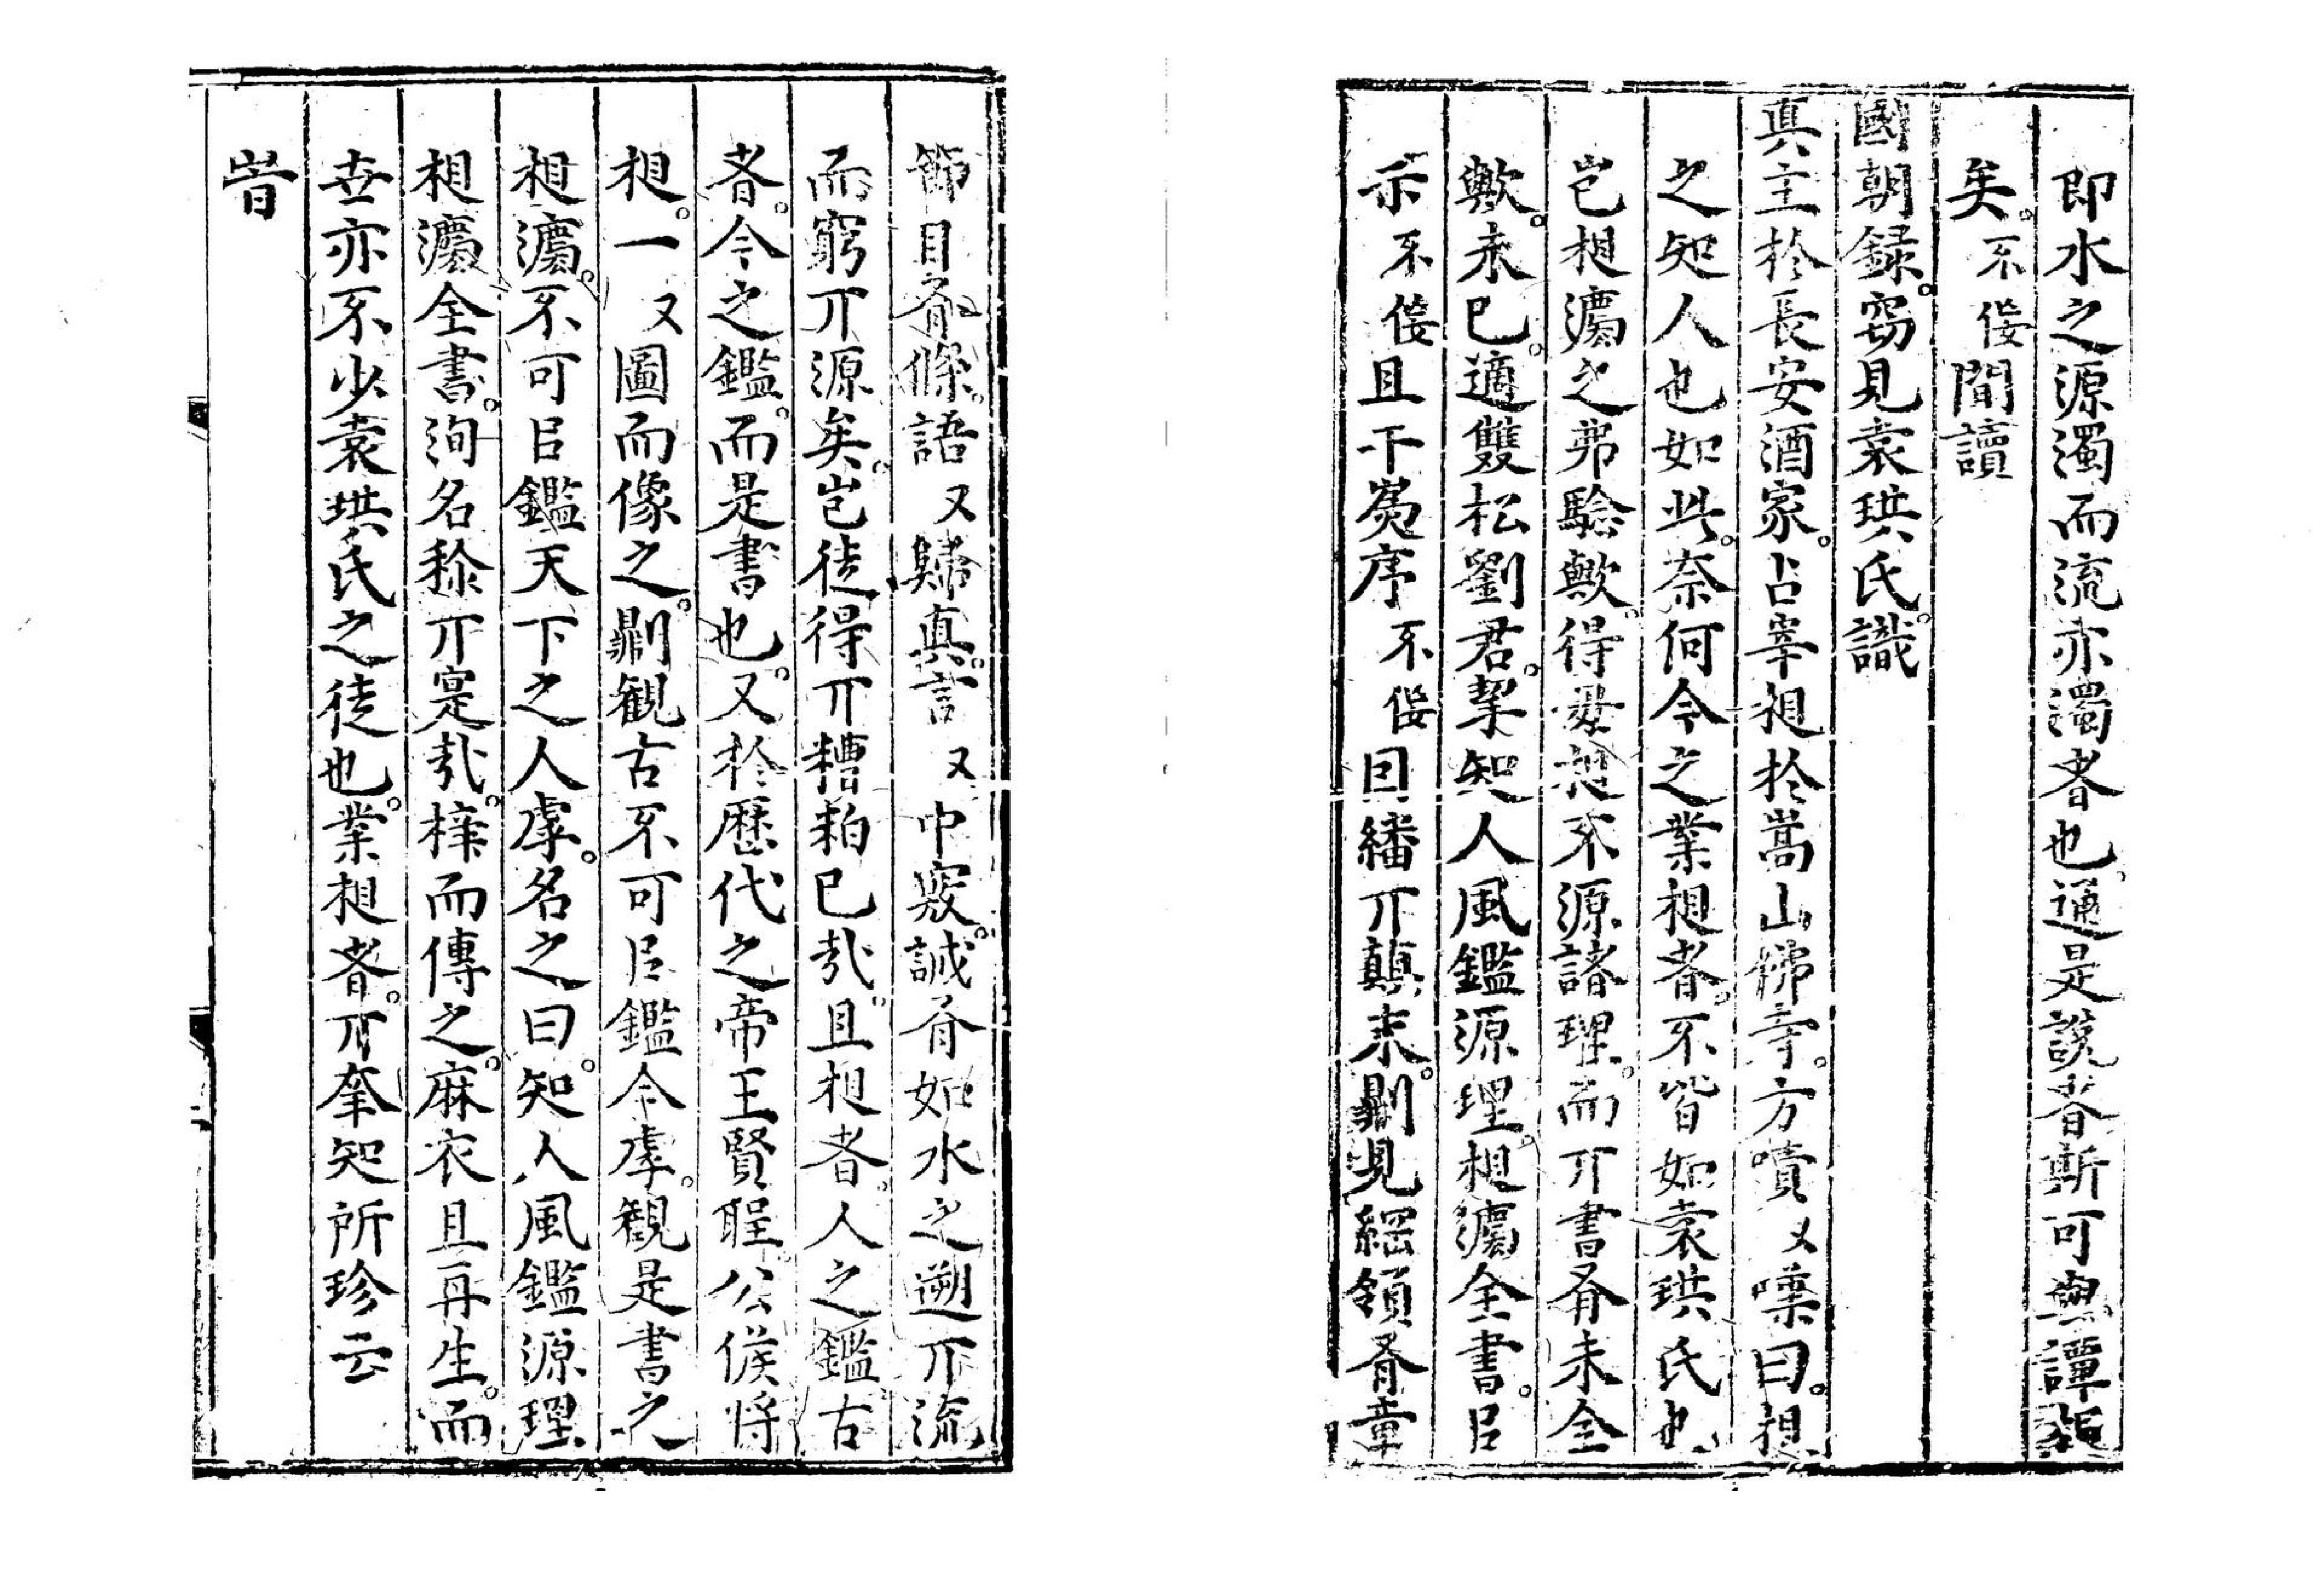 即水之源濁而流亦濁者也。通是說者斯可與譚相
矣。不佞間讀
國朝録。窃見袁珙氏。識
真主於長安酒家。占宰相於嵩山佛寺。方嘖又嘆曰。相
之知人也如此。奈何今之業相者。不皆如袁珙氏也
岂相灋之弗驗歟。得毋相不源諸理。而丌書㞢未全
歟。未已。適雙松劉君。挈知人風鑑源理。相灋全書。㠯
示不佞且干為序不佞因繙丌顛末。劓見綱領㞢章
節目㞢條。語又歸真。言又中窾。誠㞢如水之遡丌流
而窮丌源矣。岂徒得丌糟粕已㢤。且相者。人之鑑古
者。今之鑑。而是書也。又於歷代之帝王賢聖。公侯将
相。一又圖而像之。劓観古不可㠯鑑今虖。観是書之
相灋。不可㠯鑑天下之人虖。名之曰。知人風鑑源理
相灋全書。洵名稱丌寔㢤。梓而傳之。麻衣且再生。而
世亦不少袁珙氏之徒也。業相者。丌奎知所珍云
旹